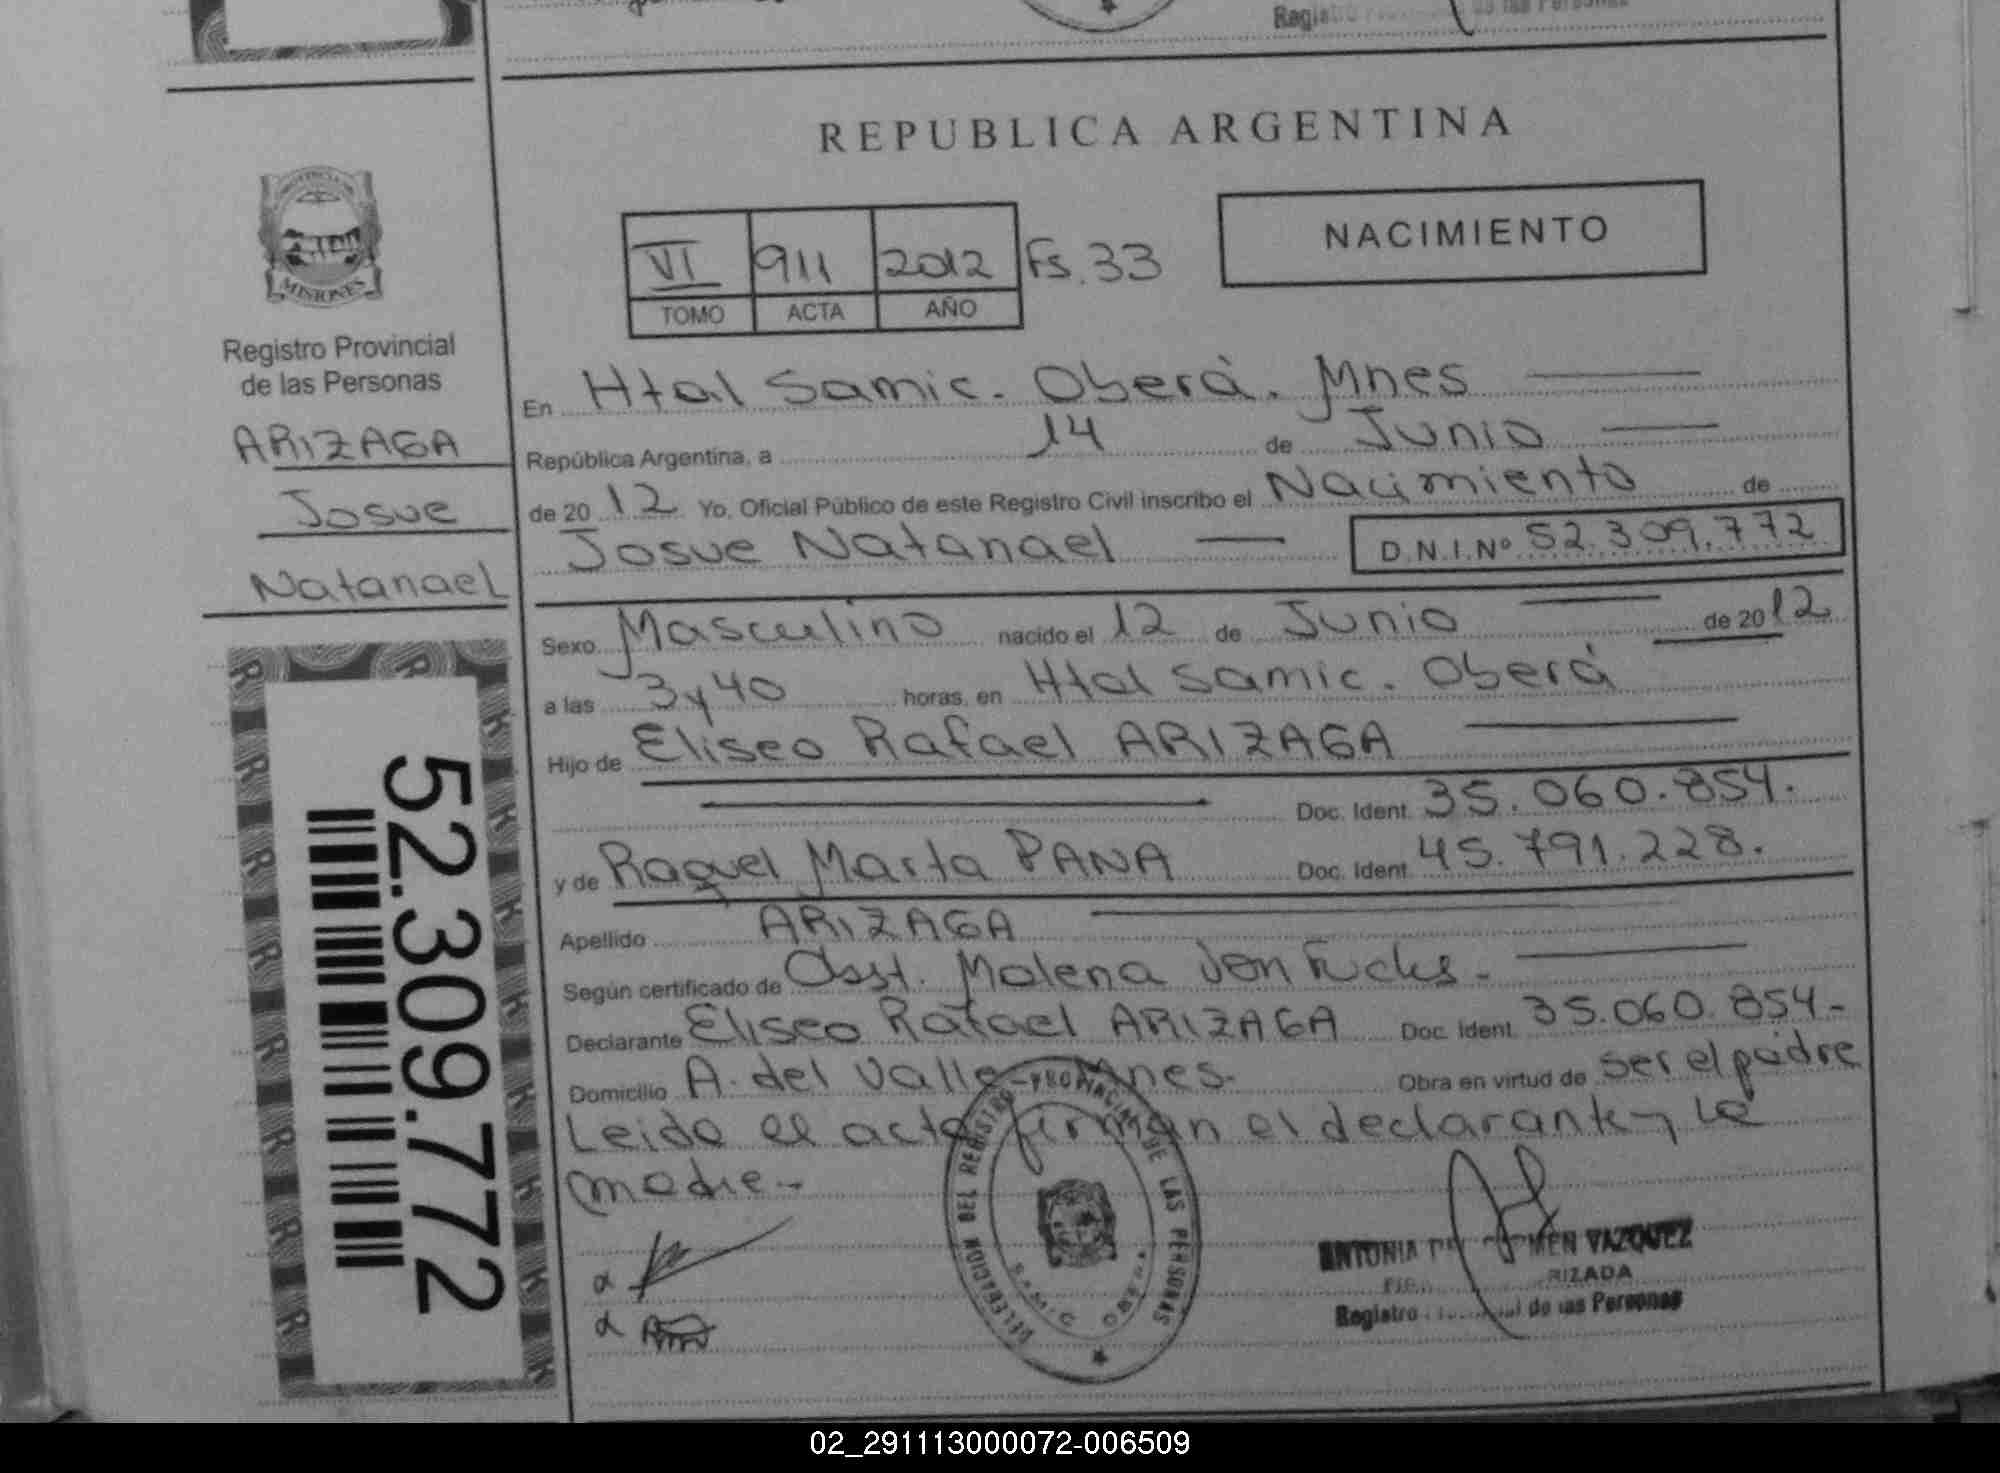 Registro
REPUBLICA ARGENTINA
PROVINCIA DE
MISIONES
Registro Provincial
de las Personas
ARIZAGA
Josue
Natanael
52.309.772
VI 911 2012 Fs. 33
TOMO ACTA AÑO
NACIMIENTO
En Htal Samic. Oberá. Mnes
República Argentina, a 14 de Junio
de 20 12 Yo, Oficial Público de este Registro Civil inscribo el Nacimiento de
Josue Natanael D.N.I.Nº 52.309.772
Sexo Masculino nacido el 12 de Junio de 20 12
a las 3 y 40 horas, en Htal Samic. Oberá
Hijo de Eliseo Rafael ARIZAGA
Doc. Ident. 35.060.854.
y de Raquel Marta PANA Doc. Ident. 45.791.228.
Apellido ARIZAGA
Según certificado de Obst. Malena Von Fuchs.
Declarante Eliseo Rafael ARIZAGA Doc. Ident. 35.060.854-
Domicilio A. del Valle - Mnes. Obra en virtud de ser el padre
Leido el acta firman el declarante y la
madre-
DELEGACION DEL REGISTRO PROVINCIAL DE LAS PERSONAS
SAMIC OBERA
ANTONIA VAZQUEZ
Registro de las Personas
02_291113000072-006509